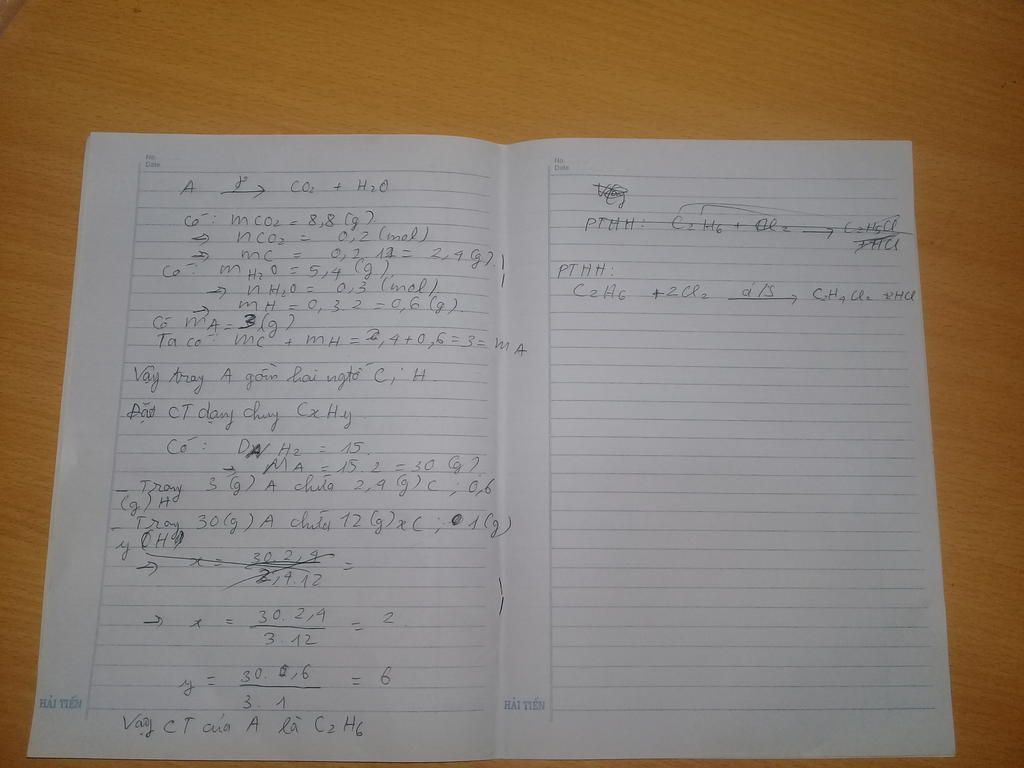 No.
Date
A t° → CO2 + H2O
Có: mCO2 = 8,8 (g)
→ nCO2 = 0,2 (mol)
→ mC = 0,2.12 = 2,4 (g).
Có mH2O = 5,4 (g)
→ nH2O = 0,3 (mol)
→ mH = 0,3.2 = 0,6 (g).
Có mA = 3 (g)
Ta có: mC + mH = 2,4 + 0,6 = 3 = mA
Vậy trong A gồm hai ngtố C; H.
Đặt CT dạng chung CxHy.
Có: DA/H2 = 15.
→ MA = 15.2 = 30 (g)
- Trong 3 (g) A chứa 2,4 (g) C; 0,6
(g) H
- Trong 30 (g) A chứa 12 (g) x C; 1 (g)
y (H)
→ x = 30.2,4 / 2,4.12 =
→ x = 30.2,4 / 3.12 = 2
y = 30.0,6 / 3.1 = 6
Vậy CT của A là C2H6
HẢI TIẾN
No.
Date
Vậy
PTHH: C2H6 + Cl2 → C2H5Cl
+HCl
PTHH:
C2H6 + 2Cl2 á/s → C2H4Cl2 + 2HCl
HẢI TIẾN